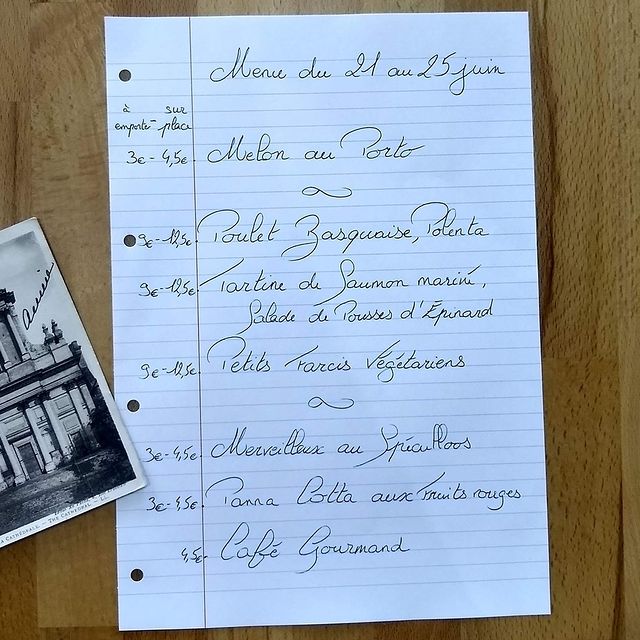 Menu du 21 au 25 juin
à emporte - sur place
3€ - 4,5€ Melon au Porto
9€ - 12,5€ Poulet Basquaise, Polenta
9€ - 12,5€ Tartine de Saumon mariné,
Salade de Pousses d'Épinard
9€ - 12,5€ Petits Farcis Végétariens
3€ - 4,5€ Merveilleux au Spéculloos
3€ - 4,5€ Panna Cotta aux Fruits rouges
4,5€ Café Gourmand
CATHÉDRALE - THE CATHEDRAL